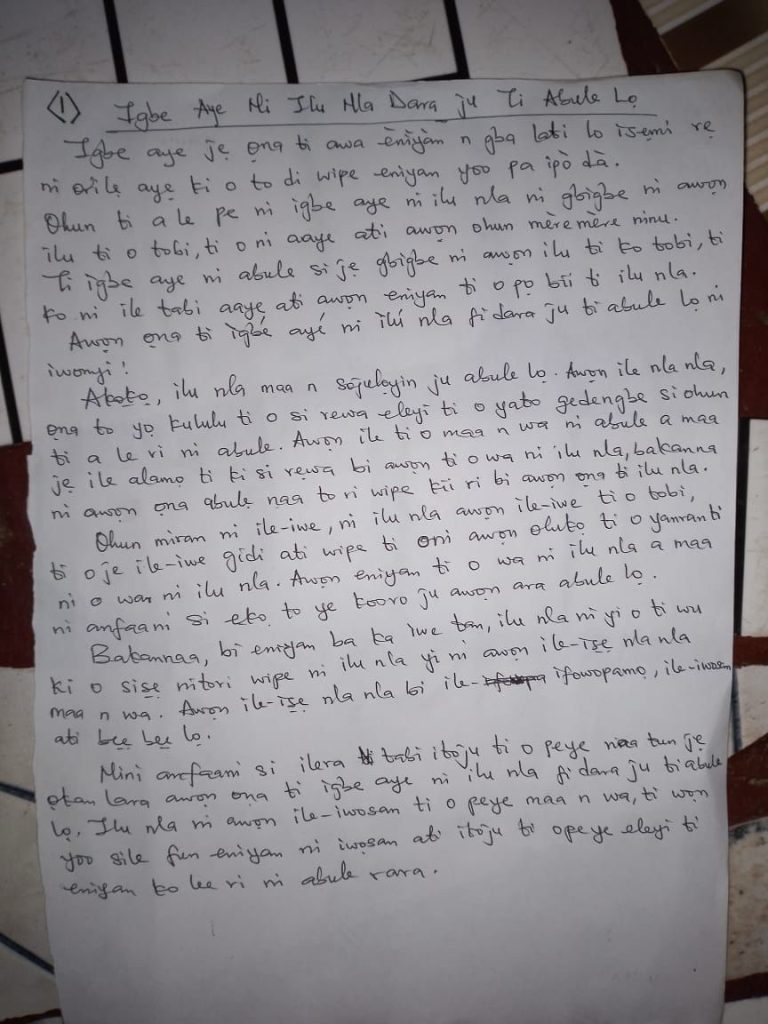 <1> Igbe Aye Ni Ilu Nla Dara ju Ti Abule Lọ
Igbe aye jẹ ọna ti awa èniyàn n gba lati lo isẹmi rẹ
ni orilẹ aye ki o to di wipe eniyan yoo pa ipò dà.
Ohun ti a le pe ni igbe aye ni ilu nla ni gbigbe ni awọn
ilu ti o tobi, ti o ni aaye ati awọn ohun mèremère ninu.
Ti igbe aye ni abule si jẹ gbigbe ni awọn ilu ti ko tobi, ti
ko ni ile tabi aaye ati awọn eniyan ti o pọ bii ti ilu nla.
Awọn ọna ti ìgbé ayé ni ìlú nla fi dara ju ti abule lọ ni
iwonyi!
Akọkọ, ilu nla maa n sojulọyin ju abule lọ. Awọn ile nla nla,
ọna to yọ kululu ti o si rewa eleyi ti o yato gedengbe si ohun
ti a le ri ni abule. Awọn ile ti o maa n wa ni abule a maa
jẹ ile alamọ ti ki si rẹwa bi awọn ti o wa ni ilu nla, bakanna
ni awọn ọna abulẹ naa to ri wipe kii ri bi awọn ọna ti ilu nla.
Ohun miran ni ile-iwe, ni ilu nla awọn ile-iwe ti o tobi,
ti o je ile-iwe gidi ati wipe ti oni awọn olukọ ti o yanranti
ni o wa ni ilu nla. Awọn eniyan ti o wa ni ilu nla a maa
ni anfaani si eko to ye kooro ju awọn ara abule lọ.
Bakannaa, bi eniyan ba ka iwe tan, ilu nla ni yi o ti wu
ki o sisẹ nitori wipe ni ilu nla yi ni awọn ile-isẹ nla nla
maa n wa. Awọn ile-isẹ nla nla bi ile- ifowopamọ, ile-iwosan
ati bẹẹ bẹẹ lọ.
Nini anfaani si ilera tabi itọju ti o peye naa tun jẹ
ọkan lara awọn ọna ti igbe aye ni ilu nla fi dara ju ti abule
lọ. Ilu nla ni awọn ile-iwosan ti o peye maa n wa, ti wọn
yoo sile fun eniyan ni iwọsan ati itoju ti opeye eleyi ti
eniyan ko lee ri ni abule rara.